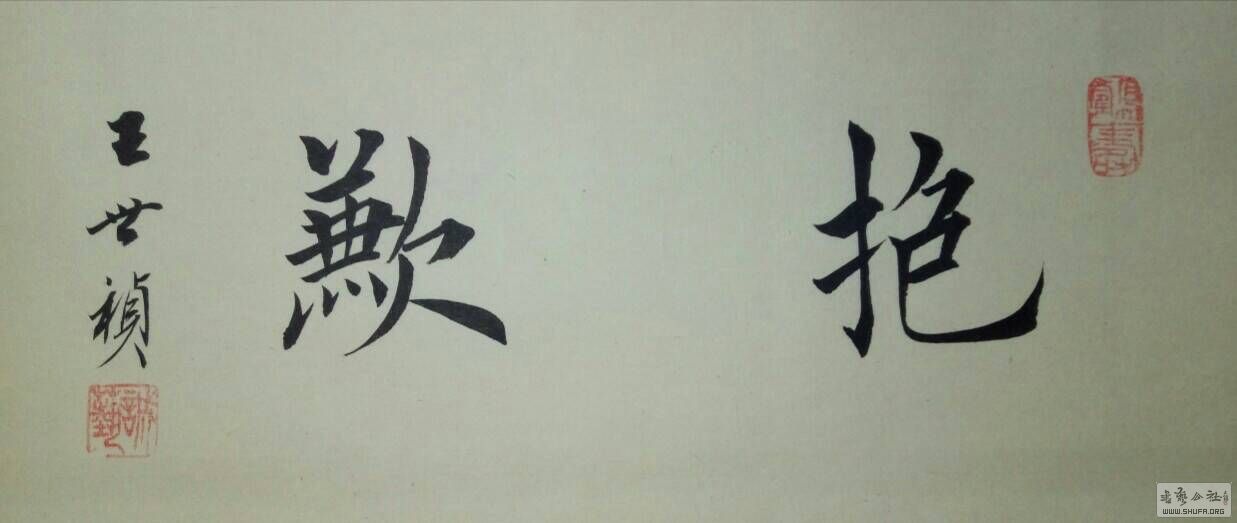 抱歉
王世禎
WWW.SHUFA.ORG